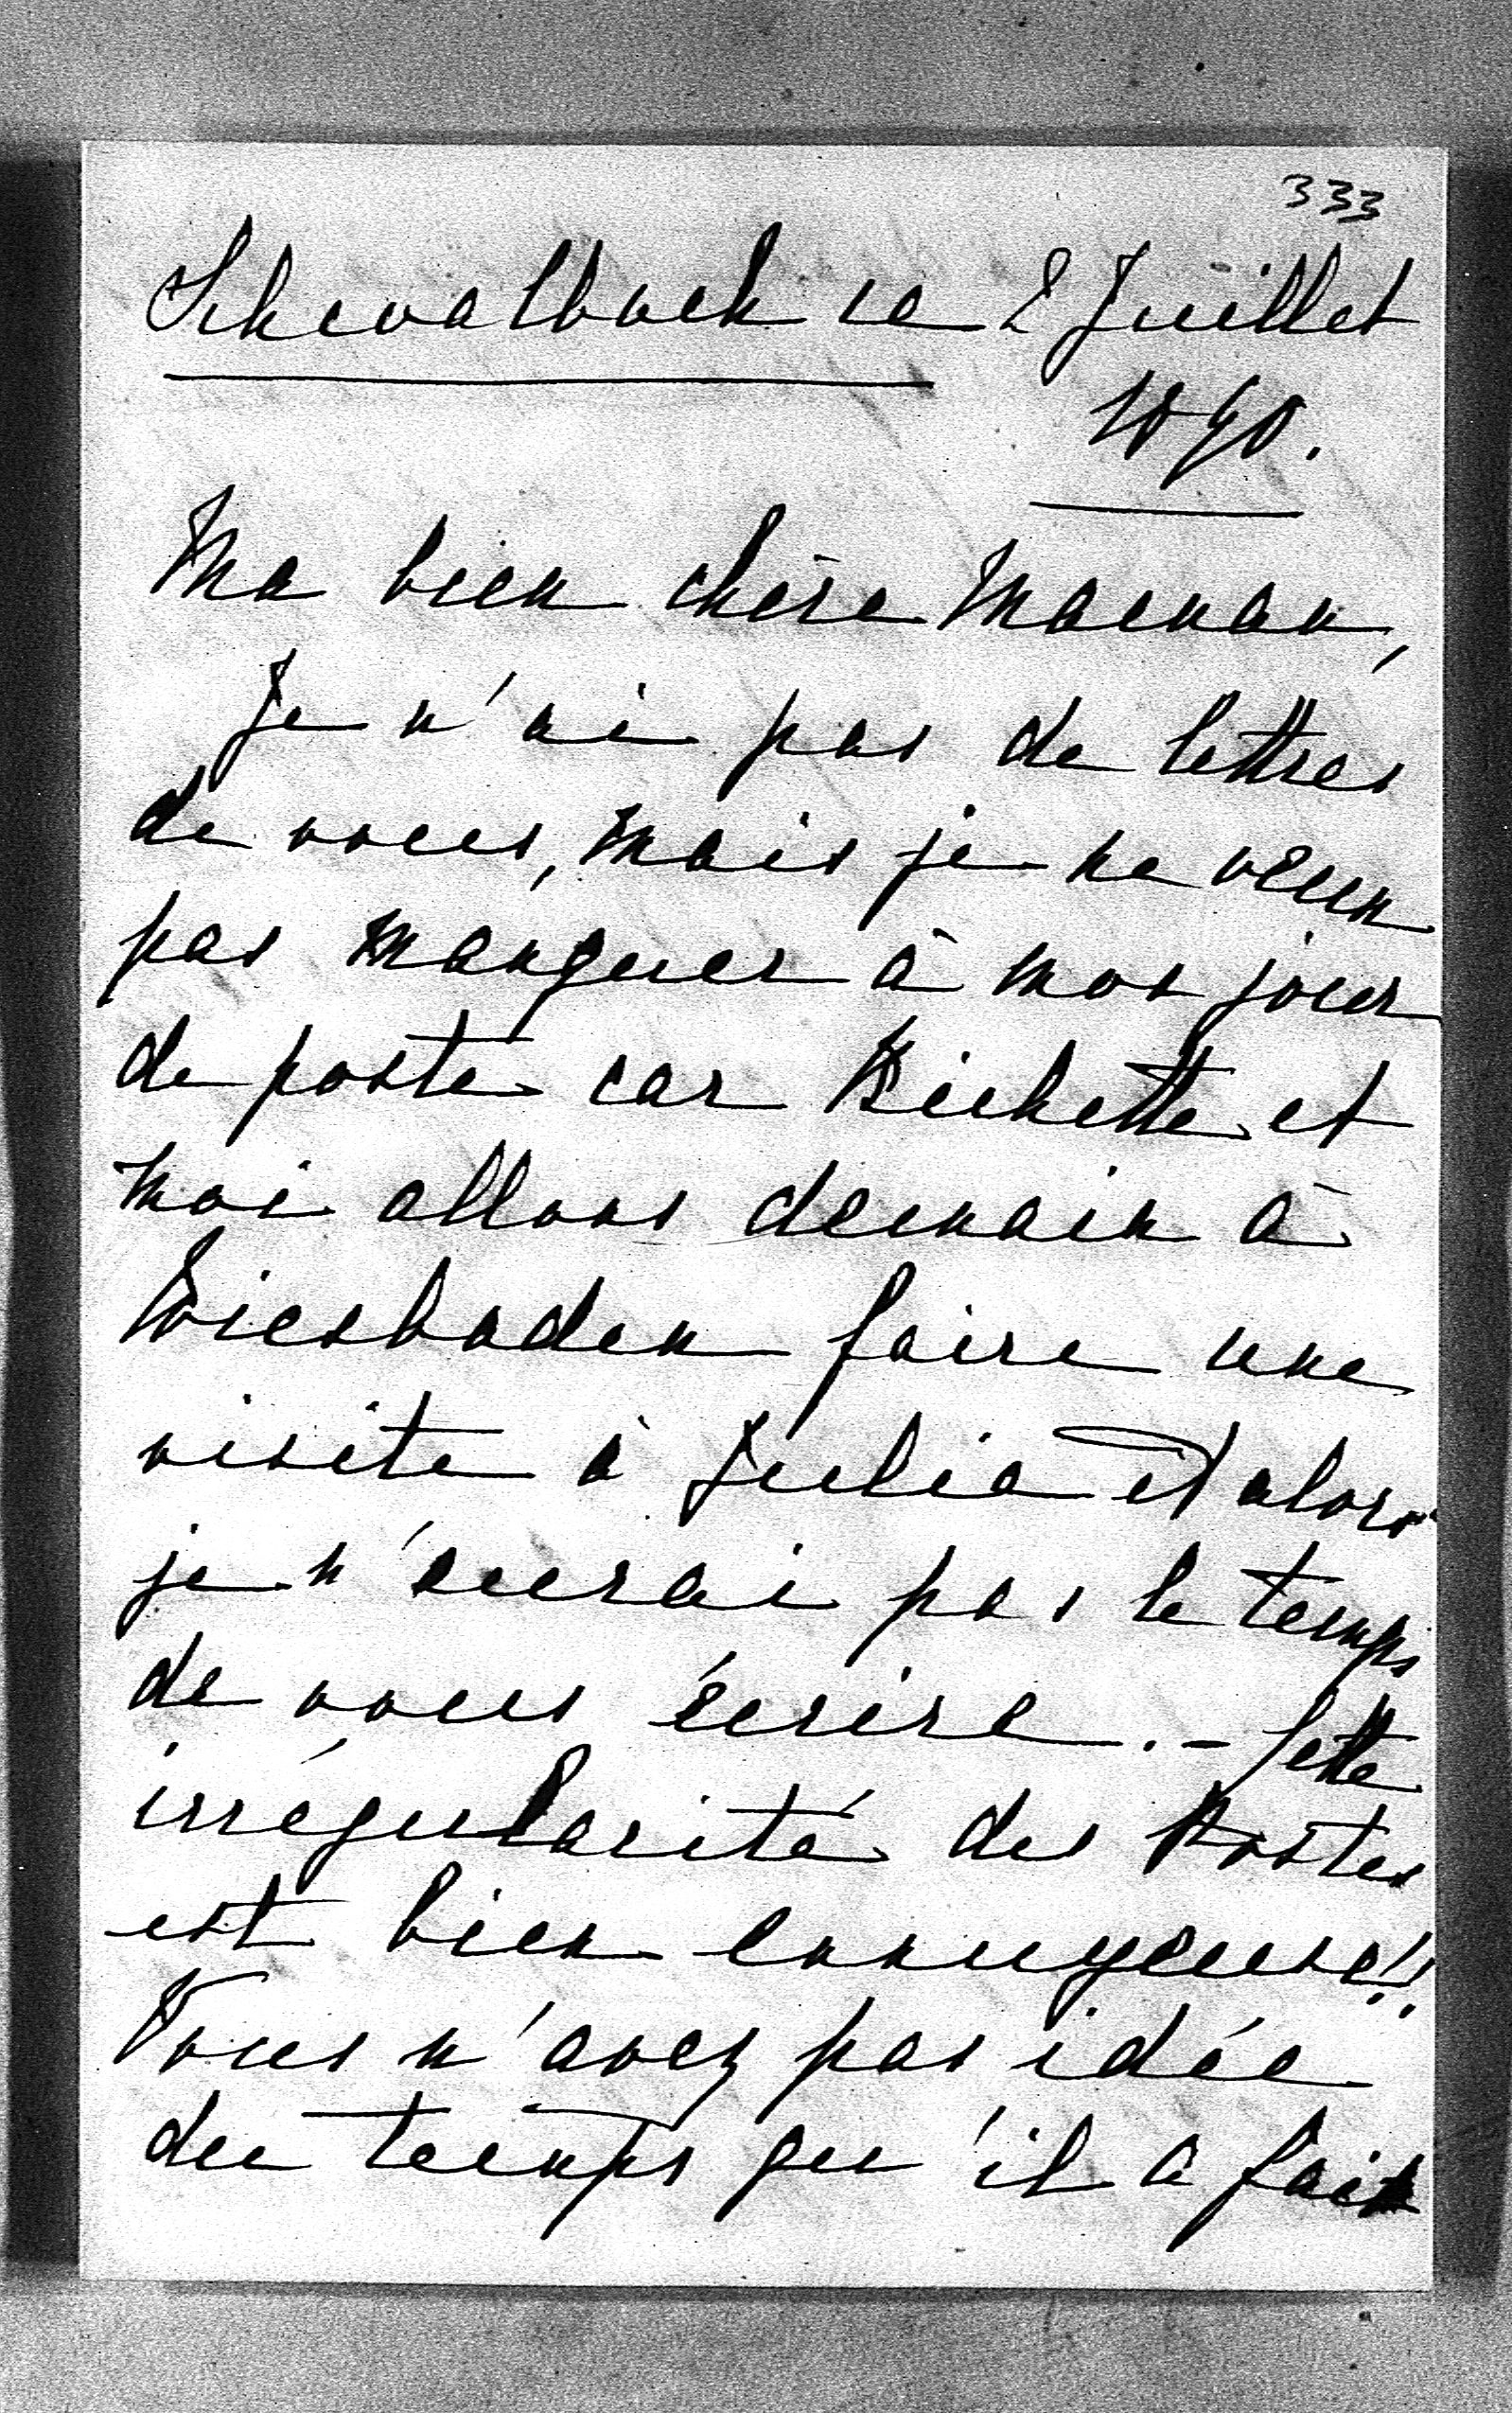 333
Schwalbach ce 2 Juillet
1890.
Ma bien chère Maman,
Je n'ai pas de lettres
de vous, mais je ne veux
pas manquer à mon jour
de poste car Bichette et
moi allons demain à
Wiesbaden faire une
visite à Julie et alors
je n'aurai pas le temps
de vous écrire. – Cette
irrégularité des Postes
est bien ennuyeuse!!
Vous n'avez pas idée
du temps qu'il a fait